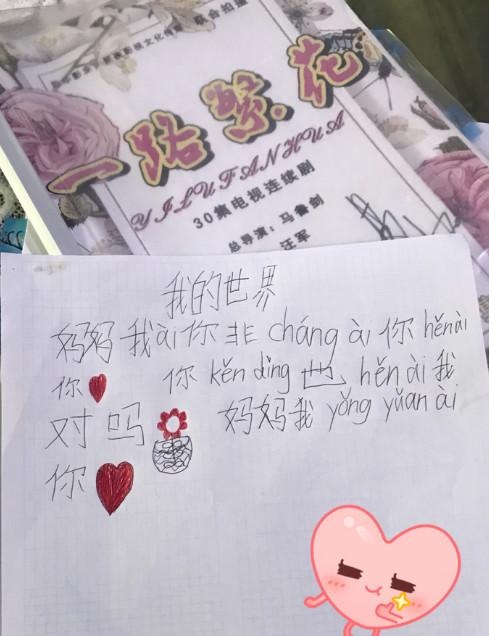 联合拍摄
一路繁花
YILUFANHUA
30集电视连续剧
总导演：马鲁剑
汪军
我的世界
妈妈我ài你非cháng ài你hěnài
你 你kěn dìng也hěn ài我
对吗 妈妈我yǒng yuǎn ài
你